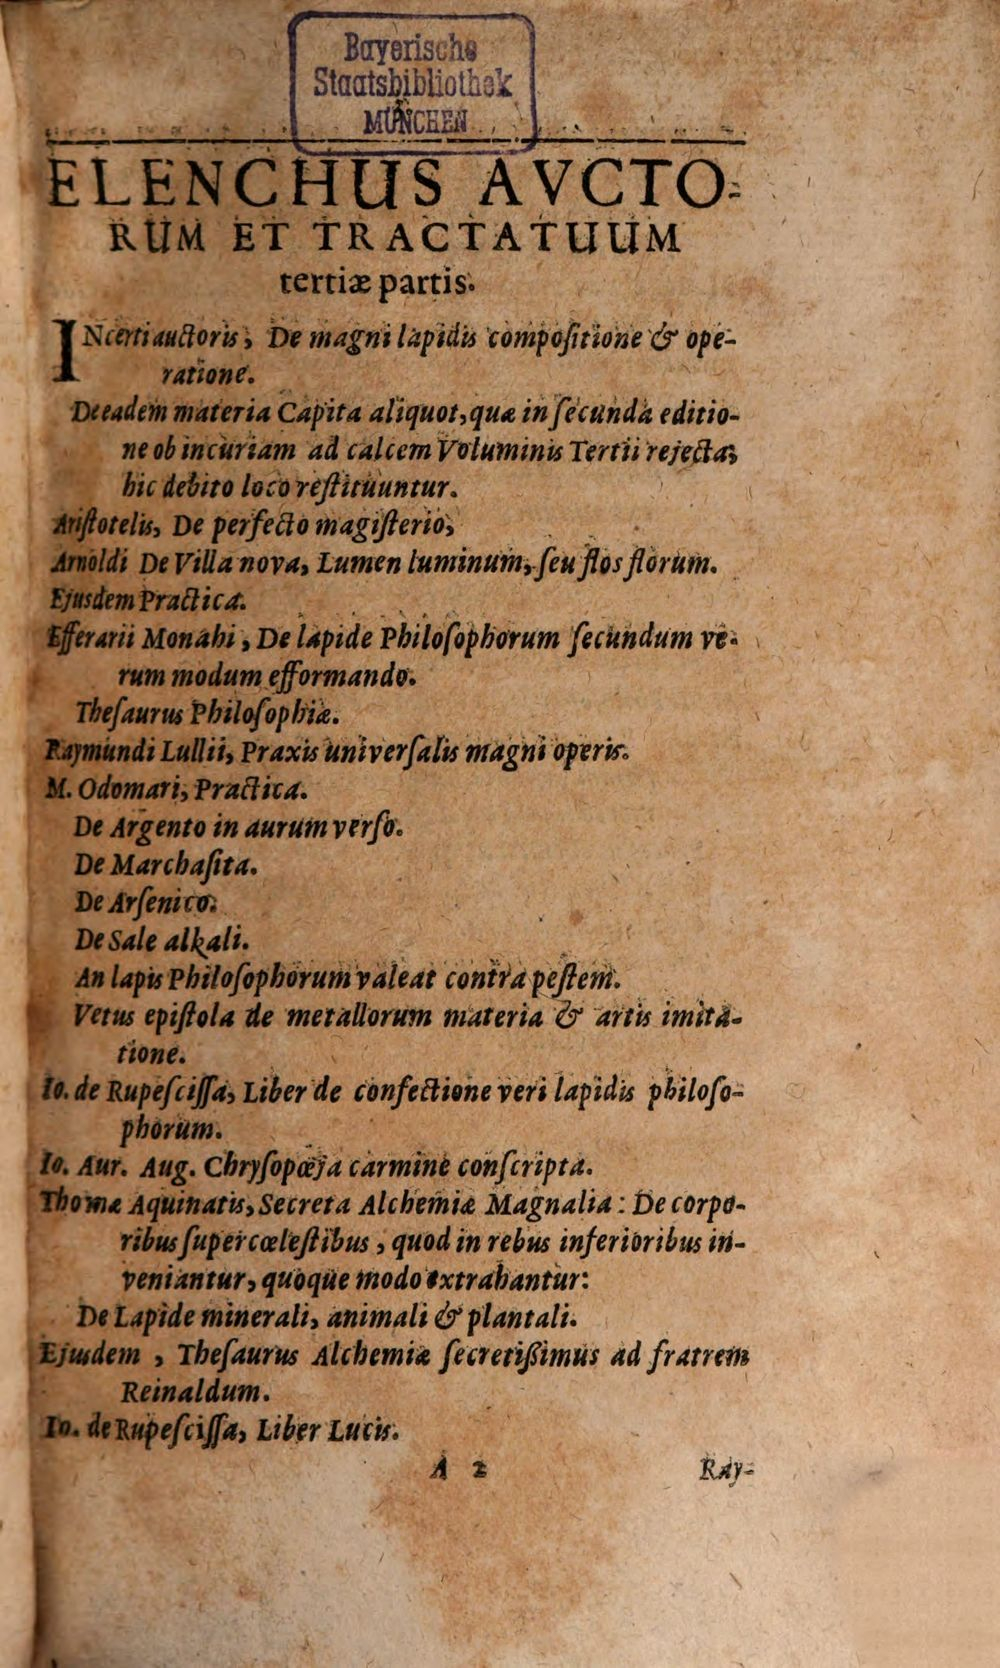 Bayerische
Staatsbibliothek
MÜNCHEN
ELENCHUS AVCTO-
RUM ET TRACTATUUM
tertiæ partis.
INcerti auctoris, De magni lapidis compoſitione & ope-
ratione.
De eadem materia Capita aliquot, quæ in ſecunda editio-
ne ob incuriam ad calcem Voluminis Tertii rejecta,
hic debito loco reſtituuntur.
Ariſtotelis, De perfecto magiſterio,
Arnoldi De Villa nova, Lumen luminum, ſeu flos florum.
Ejusdem Practica.
Efferarii Monahi, De lapide Philoſophorum ſecundum ve-
rum modum efformando.
Theſaurus Philoſophiæ.
Raymundi Lullii, Praxis univerſalis magni operis.
M. Odomari, Practica.
De Argento in aurum verſo.
De Marchaſita.
De Arſenico.
De Sale alkali.
An lapis Philoſophorum valeat contra peſtem.
Vetus epiſtola de metallorum materia & artis imita-
tione.
Io. de Rupeſciſſa, Liber de confectione veri lapidis philoſo-
phorum.
Io. Aur. Aug. Chryſopœja carmine conſcripta.
Thomæ Aquinatis, Secreta Alchemiæ Magnalia: De corpo-
ribus ſupercœleſtibus, quod in rebus inferioribus in-
veniantur, quoque modo extrahantur:
De Lapide minerali, animali & plantali.
Ejusdem, Theſaurus Alchemiæ ſecretißimus ad fratrem
Reinaldum.
Io. de Rupeſciſſa, Liber Lucis.
A 2 Ray-